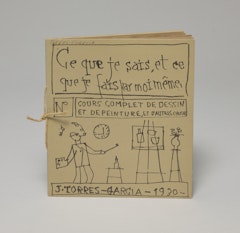 Ce que je sais, et ce
que je fais par moi même.
Nº
COURS COMPLET DE DESSIN
ET DE PEINTURE, ET D'AUTRES CHOSES
J. TORRES-GARCIA-1930-